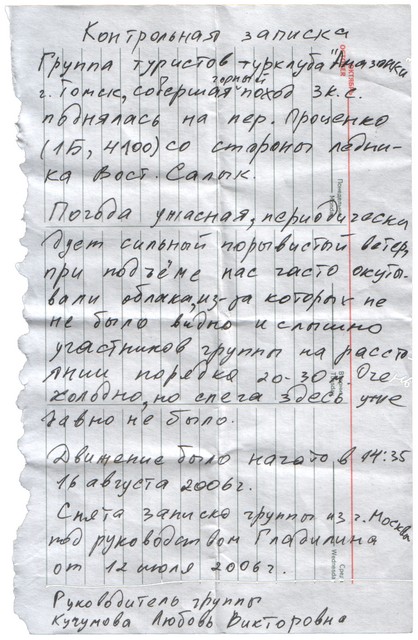 Контрольная записка
Группа туристов турклуба "Амазонки"
г. Томск, совершая горный поход 3 к.с.
поднялась на пер. Проценко
(1Б, 4100) со стороны ледни-
ка Вост. Салык.
Погода ужасная, периодически
дует сильный порывистый ветер,
при подъёме нас часто окуты-
вали облака, из-за которых не
не было видно и слышно
участников группы на рассто
янии порядка 20-30 м. Оче
холодно, но снега здесь уже
давно не было.
Движение было начато в 14:35
16 августа 2006г.
Снята записка группы из г. Москвы
под руководством Гладилина
от 12 июля 2006г.
Руководитель группы
Кучумова Любовь Викторовна